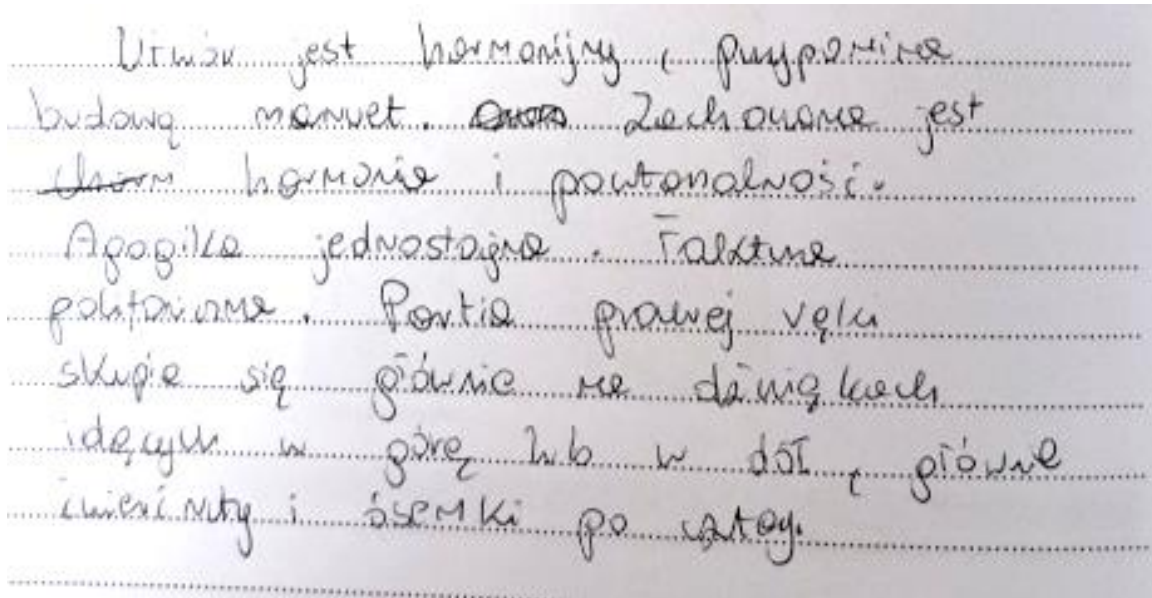 Utwór jest harmonijny, przypomina
budową manuet. Zachowana jest
harmonia i pantonalność.
Agogika jednostajna. Faktura
polifoniczna. Partia prawej ręki
skupia się głównie na dźwiękach
idących w górę lub w dół, główne
ćwierćnuty i ósemki po cztery.